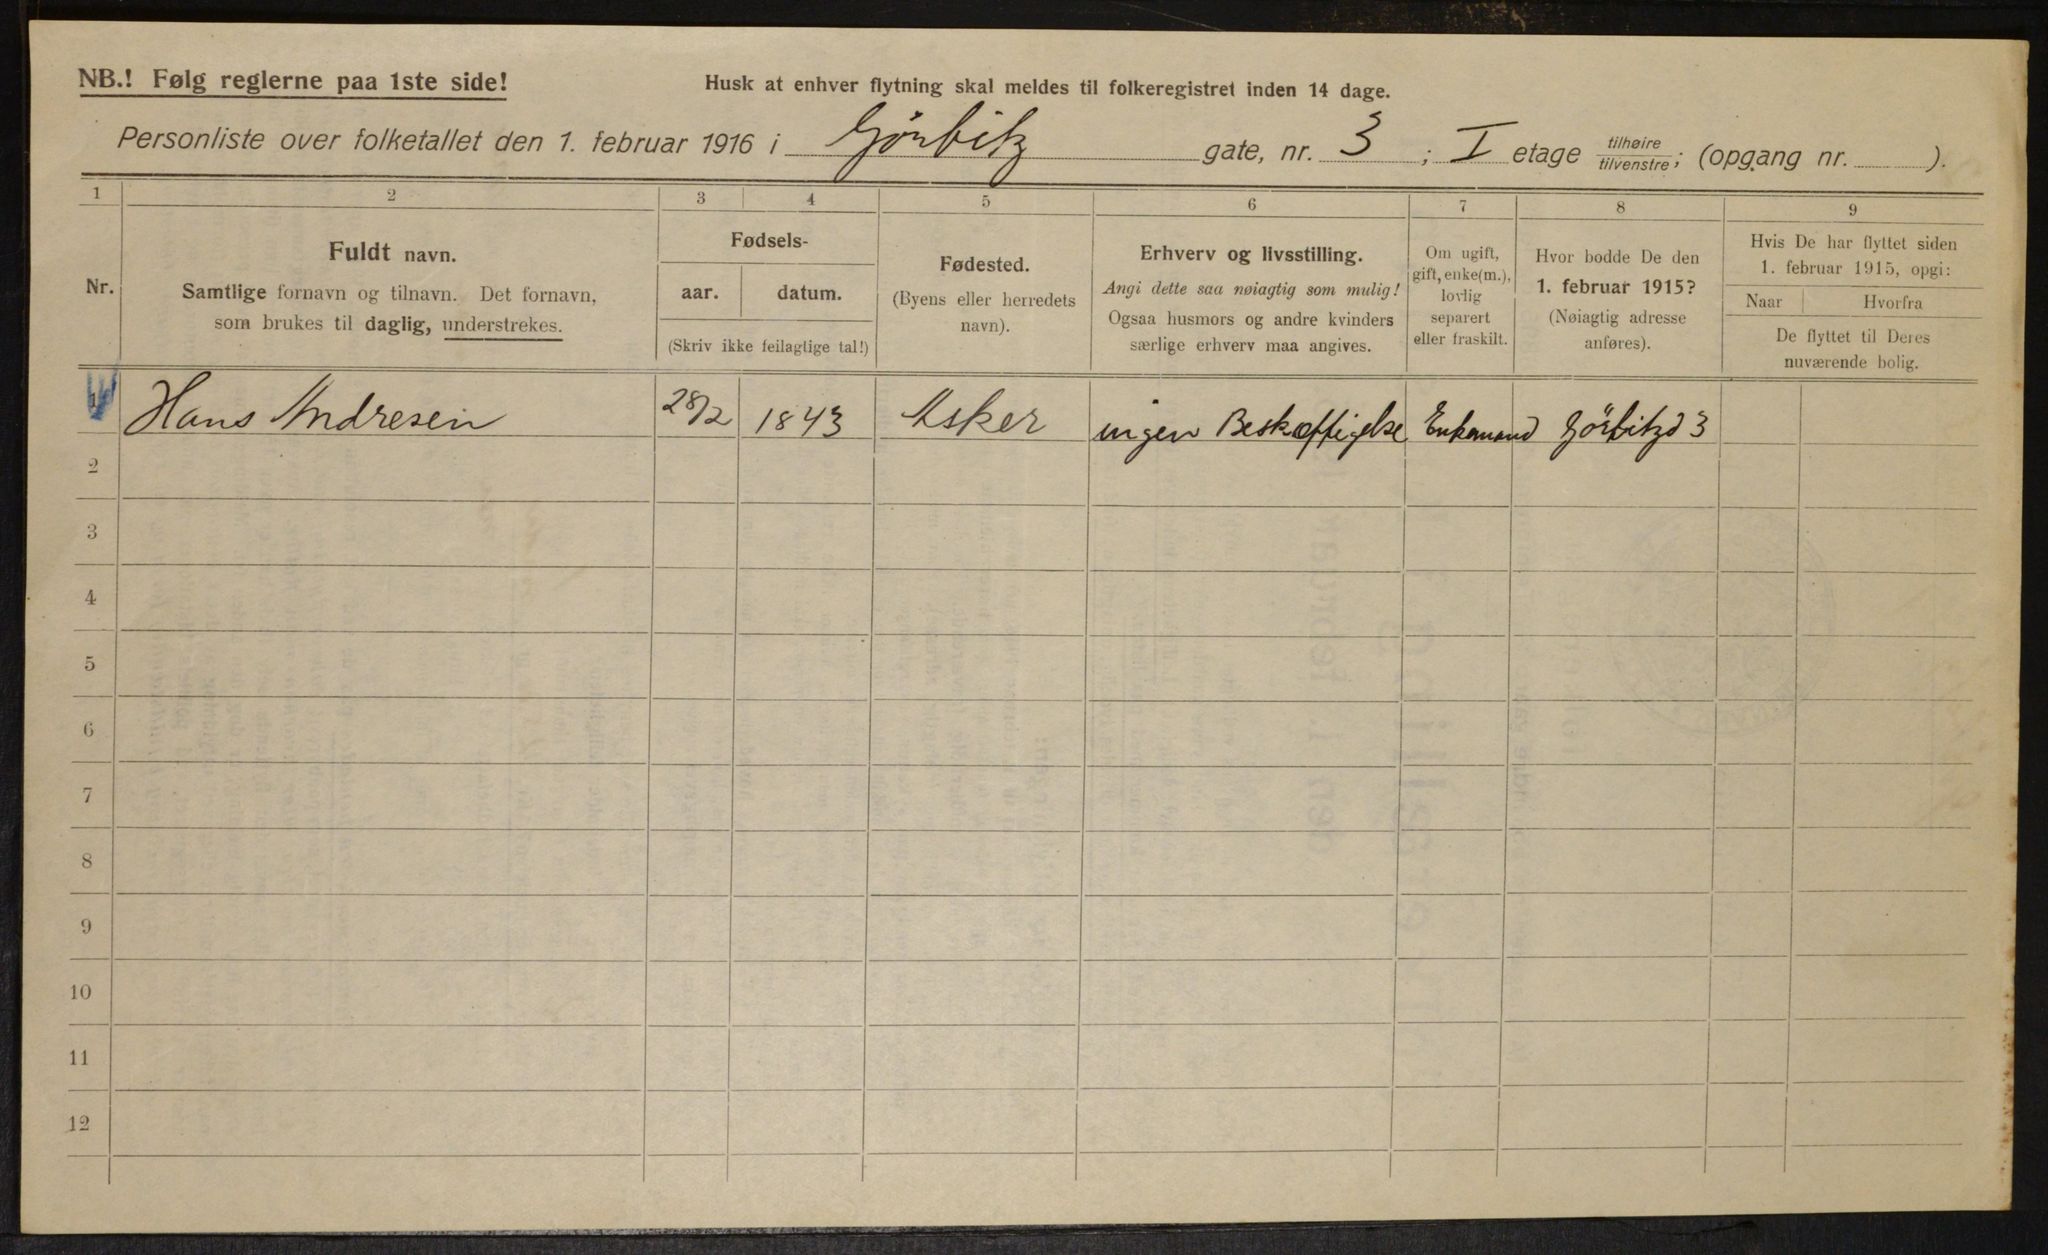 NB.! Følg reglerne paa 1ste side!
Husk at enhver flytning skal meldes til folkeregistret inden 14 dage.
Personliste over folketallet den 1. februar 1916 i Gørbitz gate, nr. 3 ; I etage tilhøire tilvenstre; (opgang nr. ).
1 2 3 4 5 6 7 8 9
Nr.
Fuldt navn.
Samtlige fornavn og tilnavn. Det fornavn,
som brukes til daglig, understrekes.
Fødsels-
aar. datum.
(Skriv ikke feilagtige tal!)
Fødested.
(Byens eller herredets
navn).
Erhverv og livsstilling.
Angi dette saa nøiagtig som mulig!
Ogsaa husmors og andre kvinders
særlige erhverv maa angives.
Om ugift,
gift, enke(m.),
lovlig
separert
eller fraskilt.
Hvor bodde De den
1. februar 1915?
(Nøiagtig adresse
anføres).
Hvis De har flyttet siden
1. februar 1915, opgi:
Naar Hvorfra
De flyttet til Deres
nuværende bolig.
Hans Andresen 28/2 1843 Asker ingen Beskæftigelse Enkemand Görbitzd 3
2
3
4
5
6
7
8
9
10
11
12